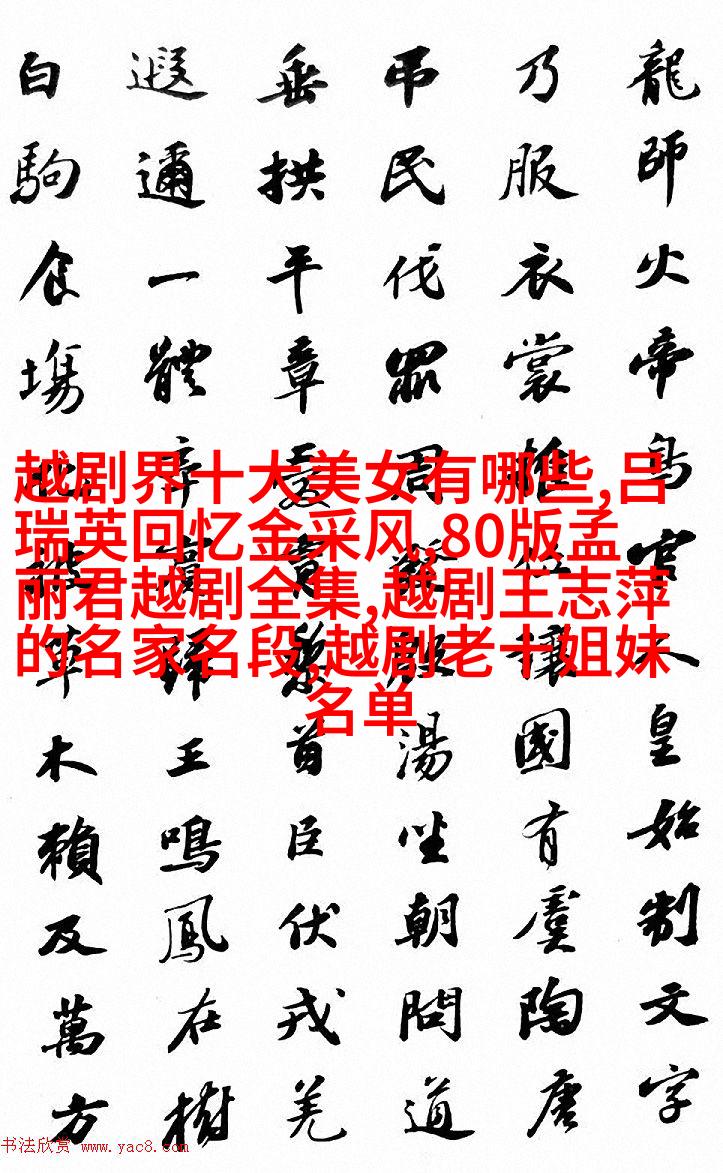 龍師火帝鳥官人皇始制文字
乃服衣裳推位讓國有虞陶唐
吊民伐罪周發殷湯坐朝問道
垂拱平章愛育黎首臣伏戎羌
遐邇一體率賓歸王鳴鳳在樹
白駒食塲化被草木賴及萬方
越剧界十大美女有哪些,吕
瑞英回忆金采风,80版孟
丽君越剧全集,越剧王志萍
的名家名段,越剧老十姐妹
名单
书法欣赏 www.yac8.com